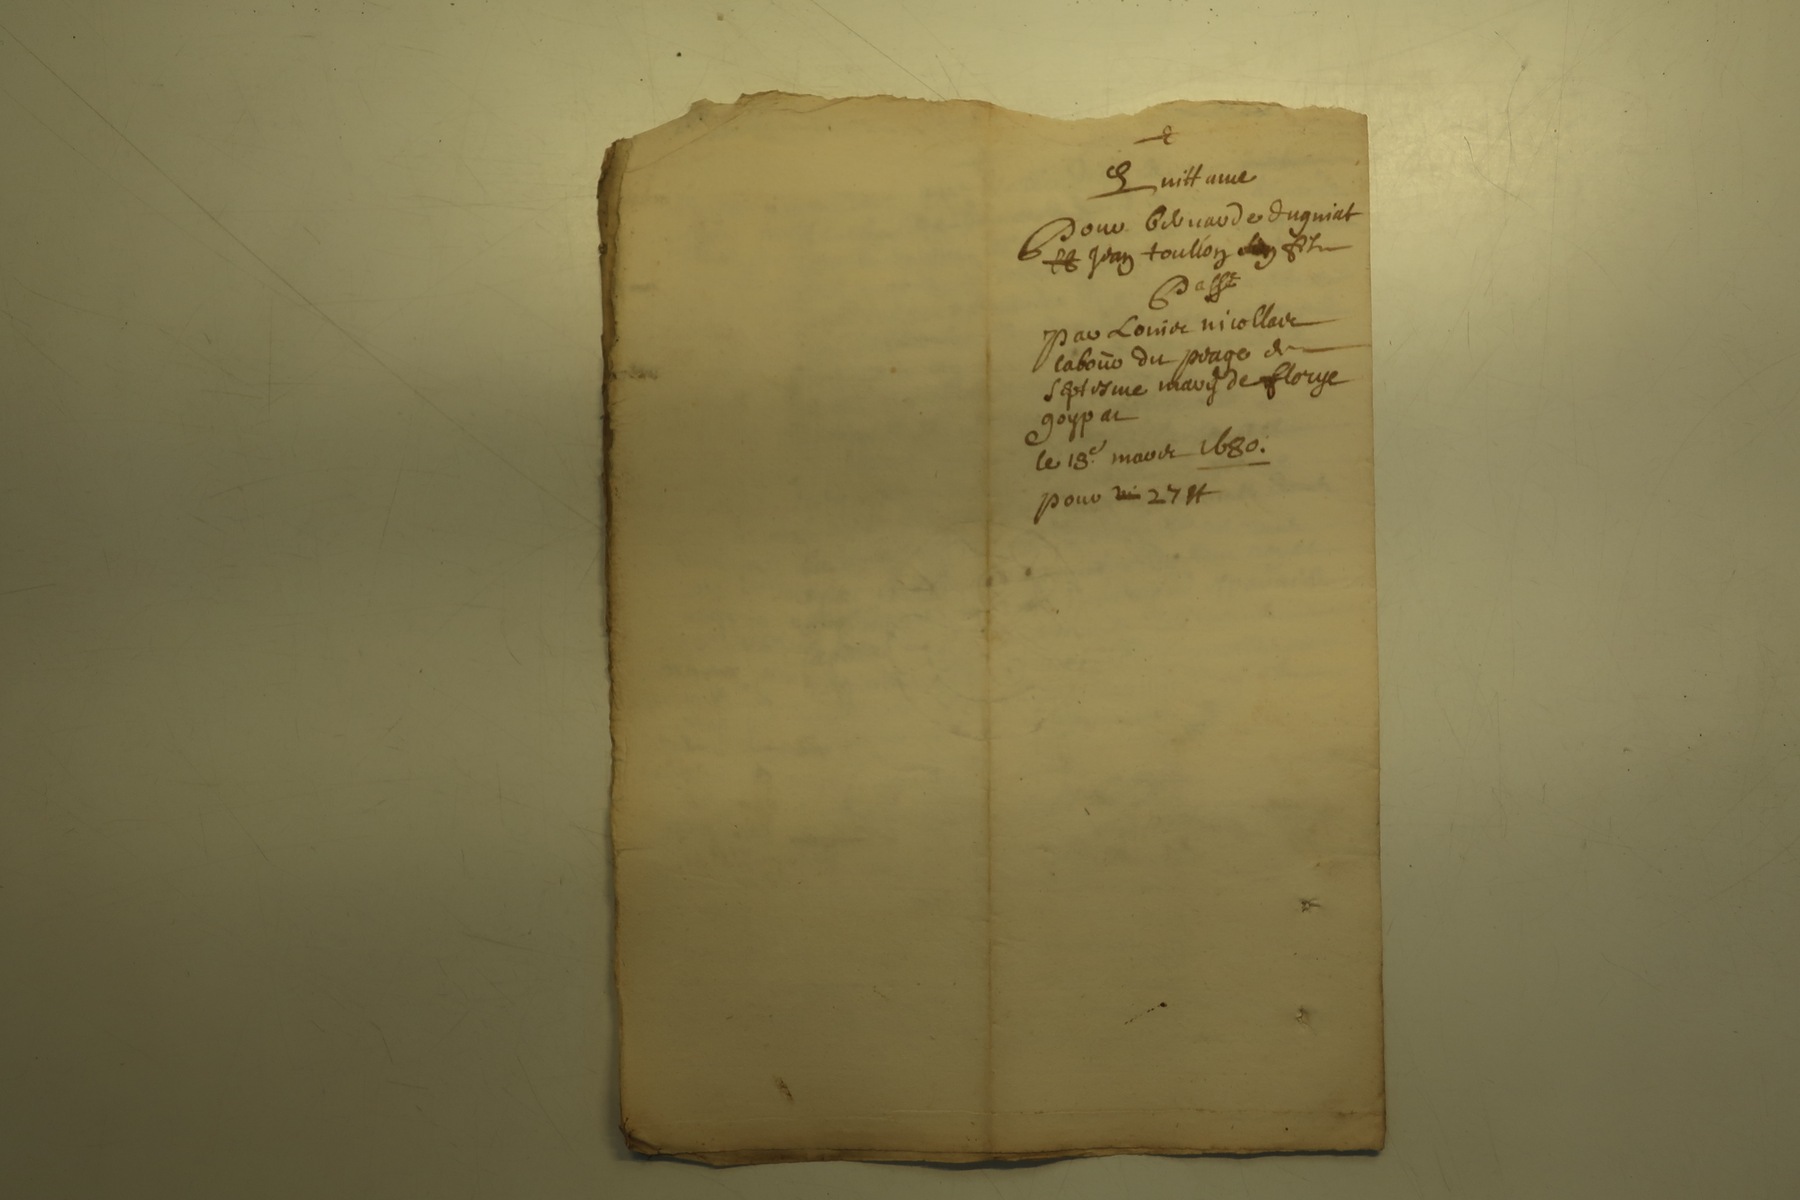 Quittance
Pour Bernarde Dugniat
et Jean toullon filz
Passé
par Louis nicollas
labour du
septesme mary de florye
goypar
le 18e mars 1680.
pour 27 lt